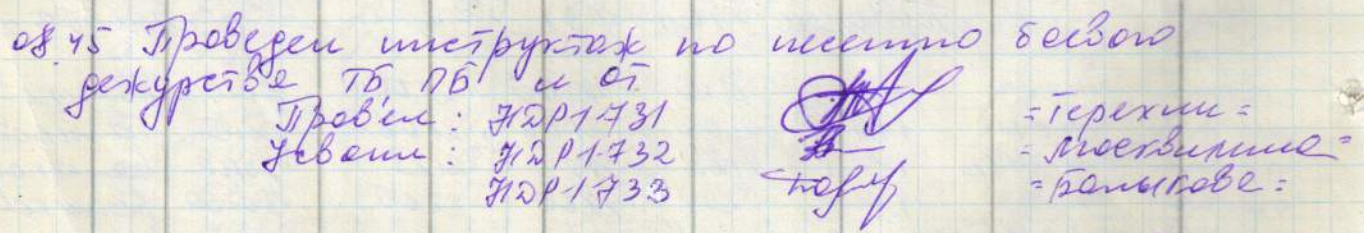 08.45 Проведен инструктаж по несению боевого
дежурства ТБ, ПБ и ОТ
Провёл: НДР1-731 =Терехин=
Усвоил: НДР1-732 =Москвитина=
НДР1-733 =Балыкова=